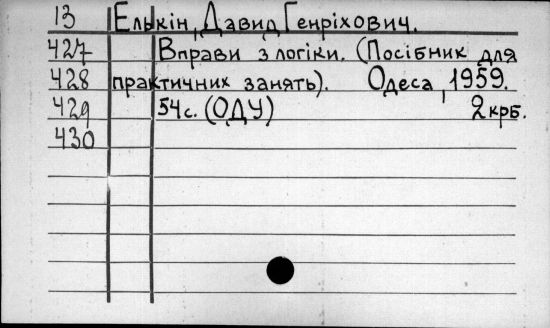 13 Елькін, Давид Генріхович.
427 Вправи з логіки. (Посібник для
428 практичних занять). Одеса, 1959.
429 54 с. (ОДУ) 2 крб.
430